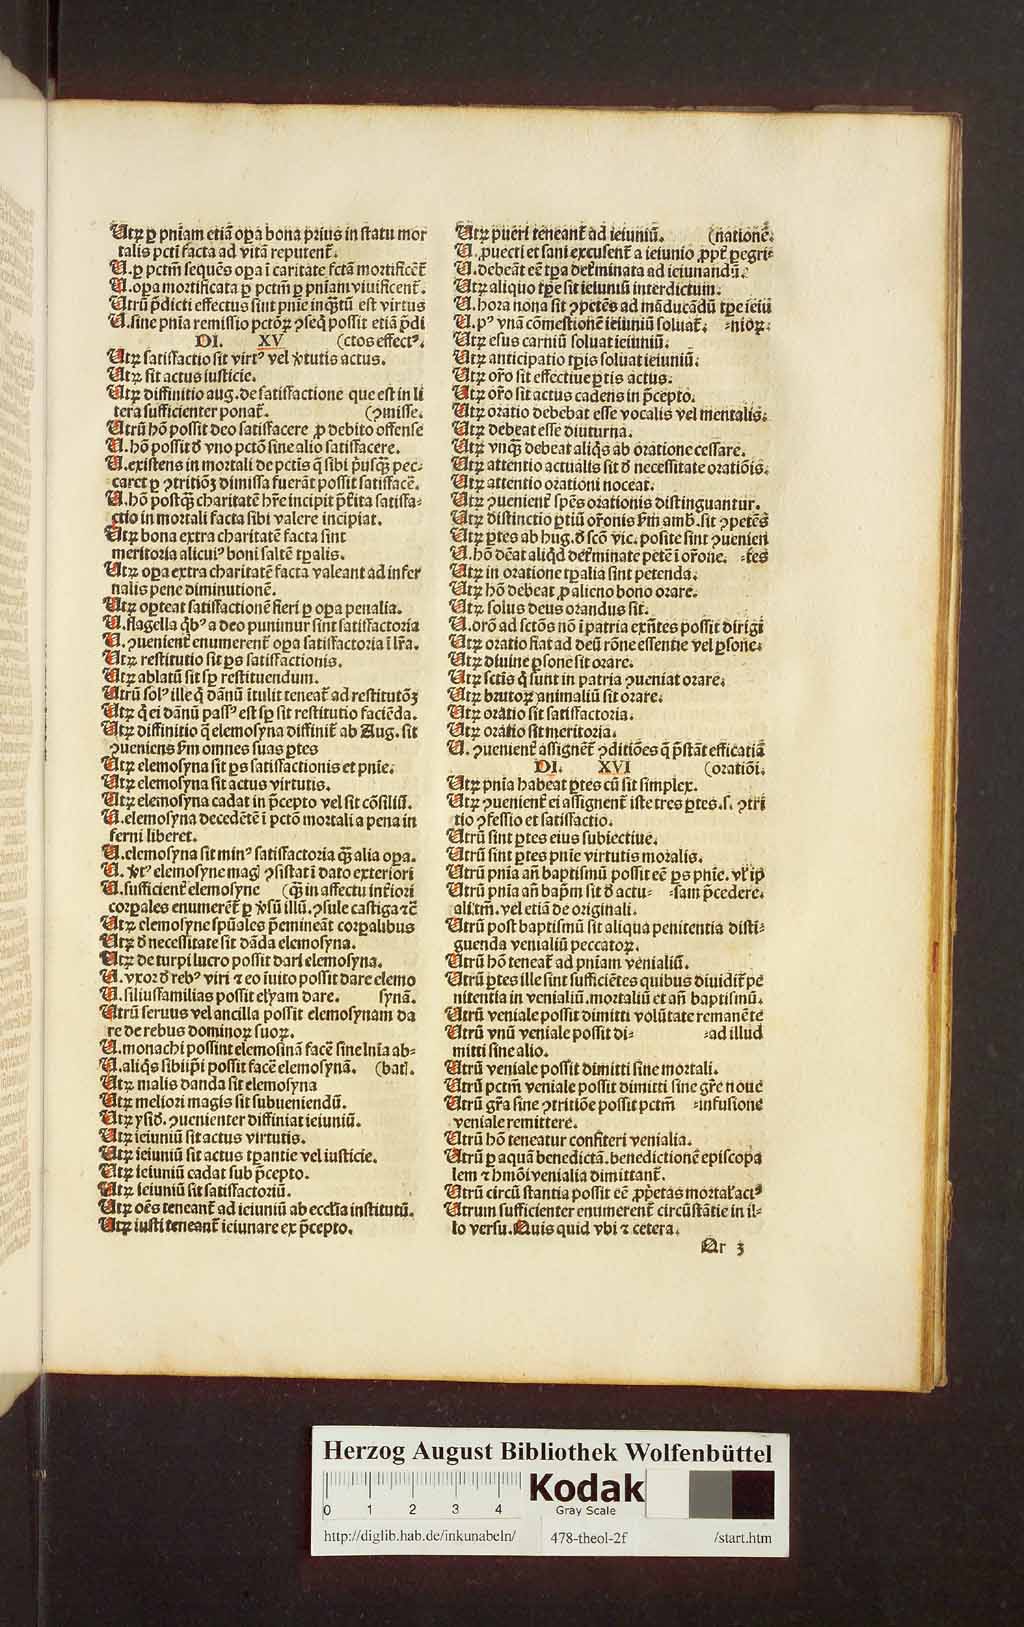 Utrꝝ ꝑ pn̄iam etiā oꝑa bona pꝛius in ſtatu moꝛ
talis pcti facta ad vitā reputent᷑.
U.ꝑ pctm̄ ſequēs oꝑa ī caritate fctā moꝛtificēt᷑
U.oꝑa moꝛtificata ꝑ pctm̄ ꝑ pn̄iam viuificent᷑.
Utrū p̄dicti effectus ſint pn̄ie inqꝫtū eſt virtus
U.ſine pn̄ia remiſſio pctōꝝ ꝯſeq̄ poſſit etiā p̄di
DI. XV (ctos effectꝰ.
Utrꝝ ſatiſfactio ſit virtꝰ vel v̓tutis actus.
Utrꝝ ſit actus iuſticie.
Utrꝝ diffinitio aug.de ſatiſfactione que eſt in li
tera ſufficienter ponat᷑. (ꝯmiſſe.
Utrū hō poſſit deo ſatiſfacere ꝓ debito offenſe
U.hō poſſit đ vno pctō ſine alio ſatiſfacere.
U.exiſtens in moꝛtali de pctis q̄ ſibi pꝰuſqꝫ pec-
caret ꝑ ꝯtritiōꝫ dimiſſa fuerāt poſſit ſatiſfacē.
U.hō poſtqꝫ charitatē hr̄e incipit p̄t̄ita ſatiſfa-
ctio in moꝛtali facta ſibi valere incipiat.
Utrꝝ bona extra charitatē facta ſint
meritoꝛia alicuiꝰ boni ſaltē tꝑalis.
Utrꝝ oꝑa extra charitatē facta valeant ad infer
nalis pene diminutionē.
Utrꝝ opꝛteat ſatiſfactionē fieri ꝑ oꝑa penalia.
U.flagella q̄bꝰ a deo punimur ſint ſatiſfactoꝛia
U.ꝯuenient᷑ enumerent᷑ oꝑa ſatiſfactoꝛia ī lr̄a.
Utrꝝ reſtitutio ſit ꝑs ſatiſfactionis.
Utrꝝ ablatū ſit ſꝑ reſtituendum.
Utrū ſolꝰ ille q̄ dānū ītulit teneat᷑ ad reſtitutōꝫ
Utrꝝ q̄ ei dānū paſſꝰ eſt ſꝑ ſit reſtitutio faciēda.
Utrꝝ diffinitio q̄ elemoſyna diffinit᷑ ab Aug. ſit
ꝯueniens ẜm omnes ſuas ꝑtes
Utrꝝ elemoſyna ſit ꝑs ſatiſfactionis et pn̄ie.
Utrꝝ elemoſyna ſit actus virtutis.
Utrꝝ elemoſyna cadat in p̄cepto vel ſit cōſilij.
U.elemoſyna decedētē ī pctō moꝛtali a pena in
ferni liberet.
U.elemoſyna ſit minꝰ ſatiſfactoꝛia qꝫ alia oꝑa.
U. v̓tꝰ elemoſyne magꝭ ꝯſiſtat ī dato exterioꝛi
U.ſufficient᷑ elemoſyne (qꝫ in affectu int̓ioꝛi
coꝛpales enumerēt᷑ ꝑ v̓ſū illū.ꝯſule caſtiga ⁊c̄
Utrꝝ elemoſyne ſpūales p̄emineāt coꝛꝑalibus
Utrꝝ đ neceſſitate ſit dāda elemoſyna.
Utrꝝ de turpi lucro poſſit dari elemoſyna.
U.vxoꝛ đ rebꝰ viri ⁊ eo īuito poſſit dare elemo
U.filiuſfamilias poſſit elyam dare. ſynā.
Utrū ſeruus vel ancilla poſſit elemoſynam da
re de rebus dominoꝝ ſuoꝝ.
U.monachi poſſint elemoſinā facē ſine lnīa ab-
U.aliq̄s ſibiip̄i poſſit facē elemoſynā. (batꝭ.
Utrꝝ malis danda ſit elemoſyna
Utrꝝ melioꝛi magis ſit ſubueniendū.
Utrꝝ yſid. ꝯuenienter diffiniat ieiuniū.
Utrꝝ ieiuniū ſit actus virtutis.
Utrꝝ ieiuniū ſit actus tꝑantie vel iuſticie.
Utrꝝ ieiuniū cadat ſub p̄cepto.
Utrꝝ ieiuniū ſit ſatiſfactoꝛiū.
Utrꝝ oēs teneant᷑ ad ieiuniū ab eccl̄ia inſtitutū.
Utrꝝ iuſti teneant᷑ ieiunare ex p̄cepto.
Utrꝝ pueri teneant᷑ ad ieiuniū. (natione.
U. ꝓuecti et ſani excuſent᷑ a ieiunio ꝓpt̓ ꝑegri-
U.debeāt eē tꝑa det̓minata ad ieiunandū.
Utrꝝ aliquo tꝑe ſit ieiuniū interdictum.
U.hoꝛa nona ſit ꝯpetēs ad māducādū tꝑe ieiu
U.pꝰ vnā cōmeſtionē ieiuniū ſoluat᷑. -nioꝝ.
Utrꝝ eſus carniū ſoluat ieiuniū.
Utrꝝ anticipatio tꝑis ſoluat ieiuniū.
Utrꝝ oꝛ̄o ſit effectiue ꝑtis actus.
Utrꝝ oꝛ̄o ſit actus cadens in p̄cepto.
Utrꝝ oꝛatio debebat eſſe vocalis vel mentalis.
Utrꝝ debeat eſſe diuturna.
Utrꝝ vnqꝫ debeat aliq̄s ab oꝛatione ceſſare.
Utrꝝ attentio actualis ſit đ neceſſitate oꝛatiōis.
Utrꝝ attentio oꝛationi noceat.
Utrꝝ ꝯuenient᷑ ſpēs oꝛationis diſtinguantur.
Utrꝝ diſtinctio ꝑtiū oꝛ̄onis ẜm amb̄.ſit ꝯpetēs
Utrꝝ ꝑtes ab hug. đ ſcō vic. poſite ſint ꝯuenien
U.hō dēat aliqd det̓minate petē ī oꝛ̄one. -tes
Utrꝝ in oꝛatione tꝑalia ſint petenda.
Utrꝝ hō debeat ꝓ alieno bono oꝛare.
Utrꝝ ſolus deus oꝛandus ſit.
U.oꝛō ad ſctōs nō ī patria exn̄tes poſſit dirigi
Utrꝝ oꝛatio fiat ad deū rōne eſſentie vel ꝑſone.
Utrꝝ diuine ꝑſone ſit oꝛare.
Utrꝝ ſctis q̄ ſunt in patria ꝯueniat oꝛare.
Utrꝝ brutoꝝ animaliū ſit oꝛare.
Utrꝝ oꝛatio ſit ſatiſfactoꝛia.
Utrꝝ oꝛatio ſit meritoꝛia.
U. ꝯuenient᷑ aſſignēt᷑ ꝯditiōes q̄ p̄ſtāt efficatiā
DI. XVI (oꝛatiōi.
Utrꝝ pn̄ia habeat ꝑtes cū ſit ſimplex.
Utrꝝ ꝯuenient᷑ ei aſſignent᷑ iſte tres ꝑtes.ſ. ꝯtri
tio ꝯfeſſio et ſatiſfactio.
Utrū ſint ꝑtes eius ſubiectiue.
Utrū ſint ꝑtes pn̄ie virtutis moꝛalis.
Utrū pn̄ia an̄ baptiſmū poſſit eē ꝑs pn̄ie. vl̓ ip̄
Utrū pn̄ia an̄ bapm̄ ſit đ actu- -ſam p̄cedere.
ali.tm̄.vel etiā de oꝛiginali.
Utrū poſt baptiſmū ſit aliqua penitentia diſti-
guenda venialiū peccatoꝝ.
Utrū hō teneat᷑ ad pn̄iam venialiū.
Utrū ꝑtes ille ſint ſufficiētes quibus diuidit᷑ pe
nitentia in venialiū.moꝛtaliū et an̄ baptiſmū.
Utrū veniale poſſit dimitti volūtate remanēte
Utrū vnū veniale poſſit di- -ad illud
mitti ſine alio.
Utrū veniale poſſit dimitti ſine moꝛtali.
Utrū pctm̄ veniale poſſit dimitti ſine gr̄e noue
Utrū gr̄a ſine ꝯtritiōe poſſit pctm̄ -infuſione
veniale remittere.
Utrū hō teneatur confiteri venialia.
Utrū ꝑ aquā benedictā.benedictionē epiſcopa
lem ⁊ hmōi venialia dimittant᷑.
Utrū circū ſtantia poſſit eē ꝓp̓etas moꝛtal̓ actꝰ
Utrum ſufficienter enumerent᷑ circūſtātie in il-
lo verſu.Quis quid vbi ⁊ cetera.
Qr 3
Herzog August Bibliothek Wolfenbüttel
0 1 2 3 4
Kodak
Gray Scale
http://diglib.hab.de/inkunabeln/ 478-theol-2f /start.htm